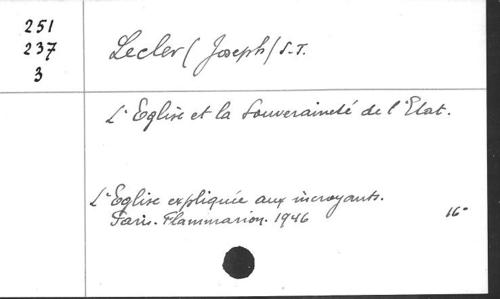 251
237
3
Lecler (Joseph) S.J.
L'Eglise et la Souveraineté de l'Etat.
L'Eglise expliquée aux incroyants.
Paris. Flammarion. 1946
16°